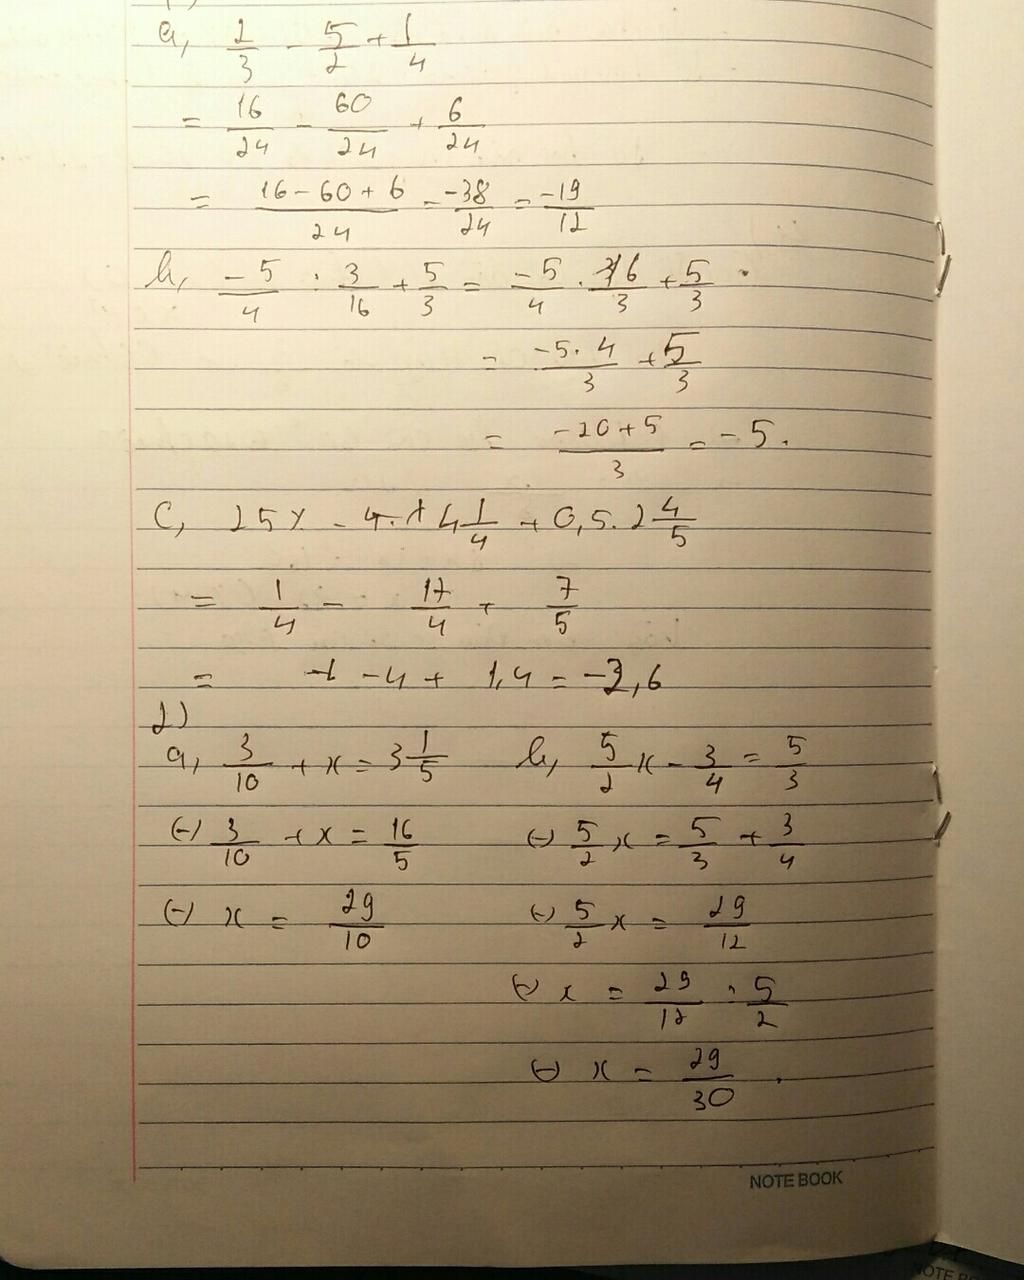 a, 2/3 - 5/2 + 1/4
= 16/24 - 60/24 + 6/24
= (16 - 60 + 6)/24 = -38/24 = -19/12
b, -5/4 : 3/16 + 5/3 = -5/4 . 16/3 + 5/3 .
= (-5.4)/3 + 5/3
= (-20+5)/3 = -5.
C, 25% - 4 1/4 + 0,5. 2 4/5
= 1/4 - 17/4 + 7/5
= -4 + 1,4 = -2,6
2)
a, 3/10 + x = 3 1/5
(-) 3/10 + x = 16/5
(-) x = 29/10
b, 5/2 x - 3/4 = 5/3
(-) 5/2 x = 5/3 + 3/4
(-) 5/2 x = 29/12
(-) x = 29/12 : 5/2
(-) x = 29/30 .
NOTE BOOK